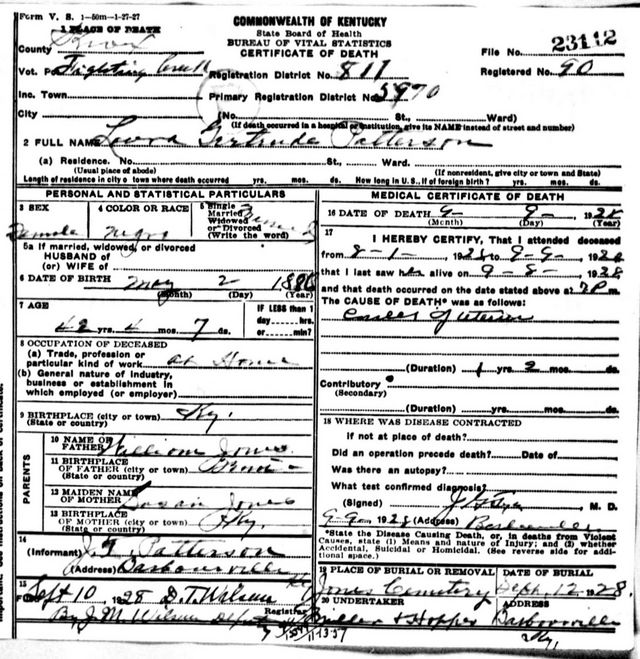 Form V. S. 1-50m-1-27-27
COMMONWEALTH OF KENTUCKY
1 PLACE OF DEATH
State Board of Health
BUREAU OF VITAL STATISTICS
CERTIFICATE OF DEATH
County Knox
File No. 23112
Vot. P Fighting Creek
Registration District No. 811
Registered No. 90
Inc. Town
Primary Registration District No. 5970
City (No. St., Ward)
(If death occurred in a hospital or institution, give its NAME instead of street and number)
2 FULL NAME Laura Gertrude Patterson
(a) Residence. No. St., Ward.
(Usual place of abode) (If nonresident, give city or town and State)
Length of residence in city o town where death occurred yrs. mos. ds. How long in U. S., if of foreign birth? yrs. mos. ds.
PERSONAL AND STATISTICAL PARTICULARS
3 SEX Female
4 COLOR OR RACE Negro
5 Single Married Widowed or Divorced (Write the word) Married
5a If married, widowed, or divorced
HUSBAND OF
(or) WIFE of
6 DATE OF BIRTH May 2 1886
(Month) (Day) (Year)
7 AGE IF LESS than 1
42 yrs. 4 mos. 7 ds. day hrs. or min?
8 OCCUPATION OF DECEASED
(a) Trade, profession or
particular kind of work at Home
(b) General nature of industry,
business or establishment in
which employed (or employer)
9 BIRTHPLACE (city or town) Ky.
(State or country)
PARENTS
10 NAME OF FATHER William Jones
11 BIRTHPLACE
OF FATHER (city or town)
(State or country)
12 MAIDEN NAME
OF MOTHER Susan Jones
13 BIRTHPLACE
OF MOTHER (city or town) Ky.
(State or country)
14
(Informant) Patterson
(Address) Barbourville Ky
15
Sept 10, 1928 D. T. Wilson
Registrar
By J. M. Wilson
MEDICAL CERTIFICATE OF DEATH
16 DATE OF DEATH 9- 9- 1928
(Month) (Day) (Year)
17
I HEREBY CERTIFY, That I attended deceased
from 8-1- 1928 to 9-9- 1928
that I last saw her alive on 9-8- 1928
and that death occurred on the date stated above at 7 P m.
The CAUSE OF DEATH* was as follows:
Cancer of uterus
(Duration) 1 yrs. 2 mos. ds.
Contributory
(Secondary)
(Duration) yrs. mos. ds.
18 WHERE WAS DISEASE CONTRACTED
if not at place of death?
Did an operation precede death? Date of
Was there an autopsy?
What test confirmed diagnosis?
(Signed) M. D.
9-9- 1928 (Address) Barbourville
*State the Disease Causing Death, or, in deaths from Violent
Causes, state (1) Means and nature of Injury; and (2) whether
Accidental, Suicidal or Homicidal. (See reverse side for additional space.)
19 PLACE OF BURIAL OR REMOVAL DATE OF BURIAL
Jones Cemetery Sept. 12 1928
20 UNDERTAKER ADDRESS
Miller & Hopper Barbourville
Ky.